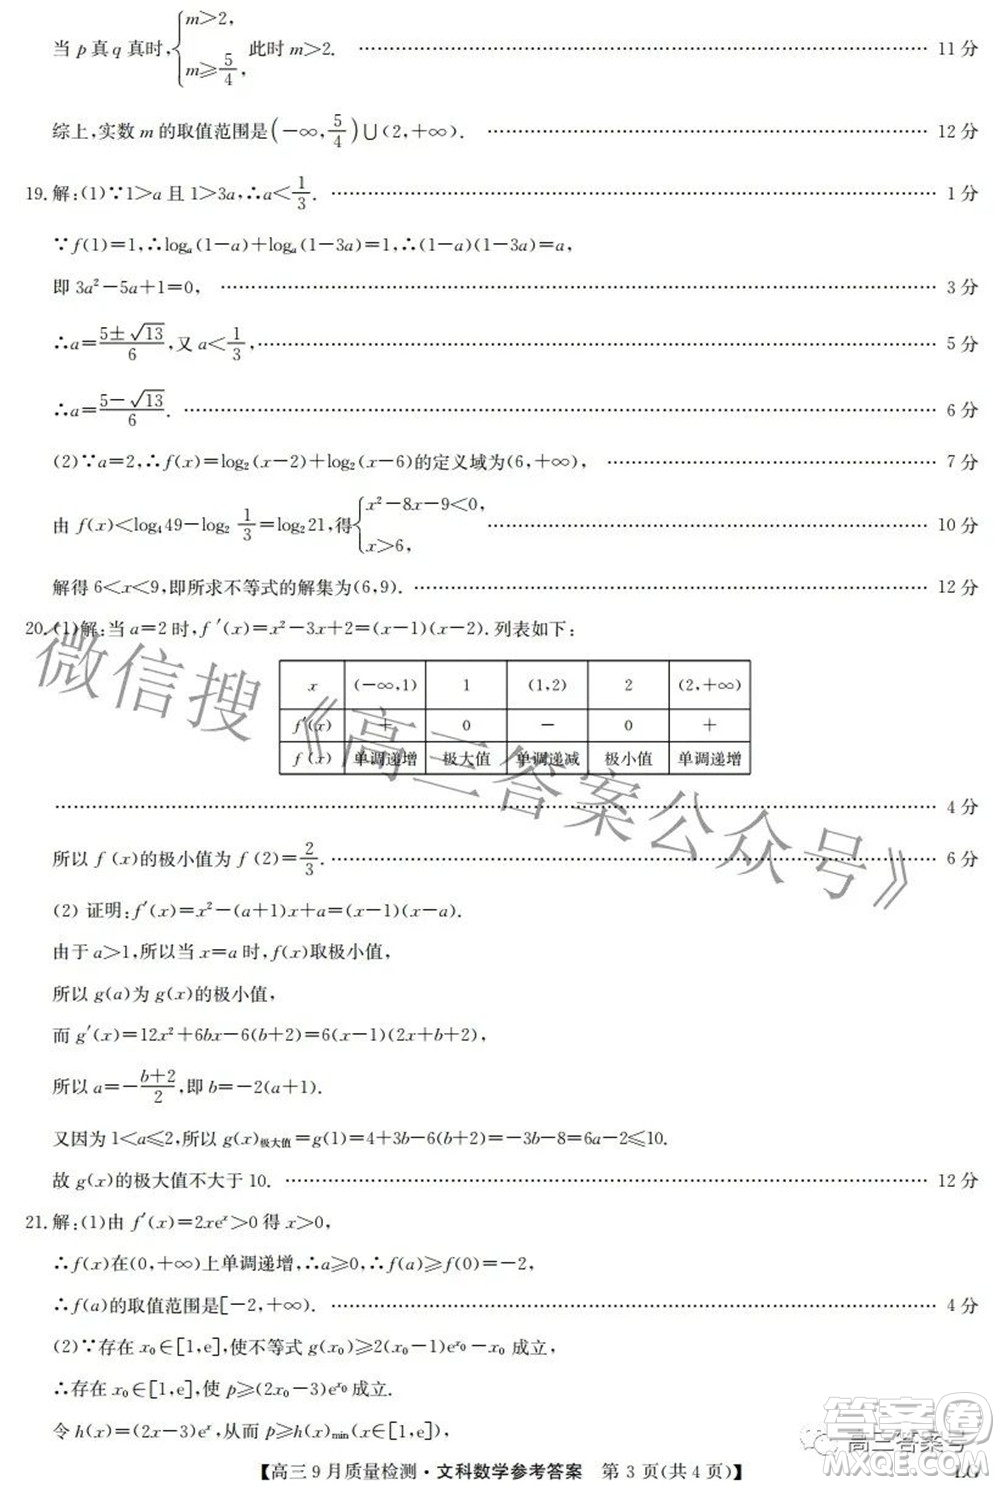 当 p 真 q 真时,{m>2, m≥5/4, 此时 m>2. ……… 11 分
综上,实数 m 的取值范围是(−∞,5/4)∪(2,+∞). ……… 12 分
19.解:(1)∵1>a 且 1>3a,∴a<1/3. ……… 1 分
∵f(1)=1,∴logₐ(1−a)+logₐ(1−3a)=1,∴(1−a)(1−3a)=a,
即 3a²−5a+1=0, ……… 3 分
∴a=(5±√13)/6,又 a<1/3, ……… 5 分
∴a=(5−√13)/6. ……… 6 分
(2)∵a=2,∴f(x)=log₂(x−2)+log₂(x−6)的定义域为(6,+∞), ……… 7 分
由 f(x)<log₄49−log₂ 1/3=log₂21,得{x²−8x−9<0, x>6, ……… 10 分
解得 6<x<9,即所求不等式的解集为(6,9). ……… 12 分
20.(1)解:当 a=2 时,f′(x)=x²−3x+2=(x−1)(x−2).列表如下:
x (−∞,1) 1 (1,2) 2 (2,+∞)
f′(x) + 0 − 0 +
f(x) 单调递增 极大值 单调递减 极小值 单调递增
……… 4 分
所以 f(x)的极小值为 f(2)=2/3. ……… 6 分
(2) 证明:f′(x)=x²−(a+1)x+a=(x−1)(x−a).
由于 a>1,所以当 x=a 时,f(x)取极小值,
所以 g(a)为 g(x)的极小值,
而 g′(x)=12x²+6bx−6(b+2)=6(x−1)(2x+b+2),
所以 a=−(b+2)/2,即 b=−2(a+1).
又因为 1<a≤2,所以 g(x)极大值=g(1)=4+3b−6(b+2)=−3b−8=6a−2≤10.
故 g(x)的极大值不大于 10. ……… 12 分
21.解:(1)由 f′(x)=2xeˣ>0 得 x>0,
∴f(x)在(0,+∞)上单调递增,∴a≥0,∴f(a)≥f(0)=−2,
∴f(a)的取值范围是[−2,+∞). ……… 4 分
(2)∵存在 x₀∈[1,e],使不等式 g(x₀)≥2(x₀−1)e^x₀−x₀ 成立,
∴存在 x₀∈[1,e],使 p≥(2x₀−3)e^x₀成立.
令 h(x)=(2x−3)eˣ,从而 p≥h(x)min(x∈[1,e]),
【高三 9 月质量检测·文科数学参考答案 第 3 页(共 4 页)】 LG
微信搜《高三答案公众号》
高三答案号
答案卷